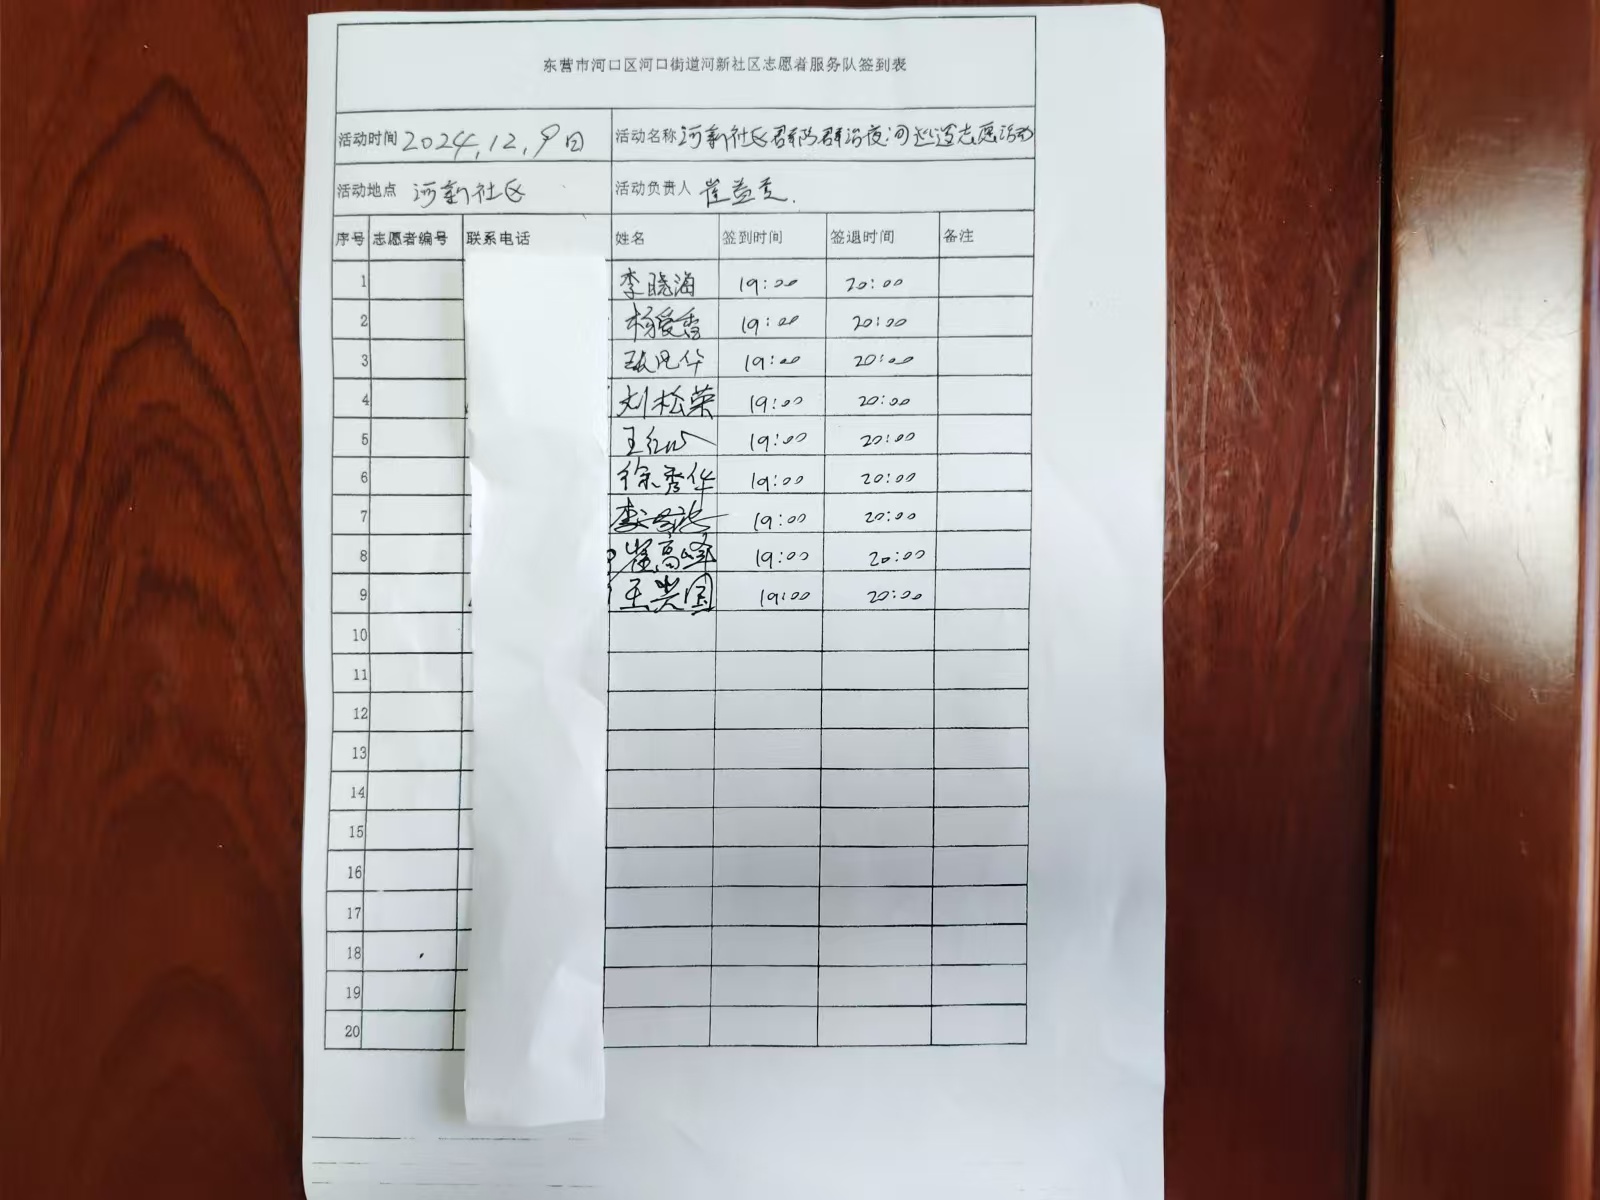 东营市河口区河口街道河新社区志愿者服务队签到表
活动时间 2024.12.9日 活动名称 河新社区群防群治夜间巡逻志愿活动
活动地点 河新社区 活动负责人 崔益
序号 志愿者编号 联系电话 姓名 签到时间 签退时间 备注
1 李晓海 19:00 20:00
2 杨爱香 19:00 20:00
3 19:00 20:00
4 刘松荣 19:00 20:00
5 王红 19:00 20:00
6 徐秀华 19:00 20:00
7 李 19:00 20:00
8 崔高峰 19:00 20:00
9 王兴国 19:00 20:00
10
11
12
13
14
15
16
17
18
19
20